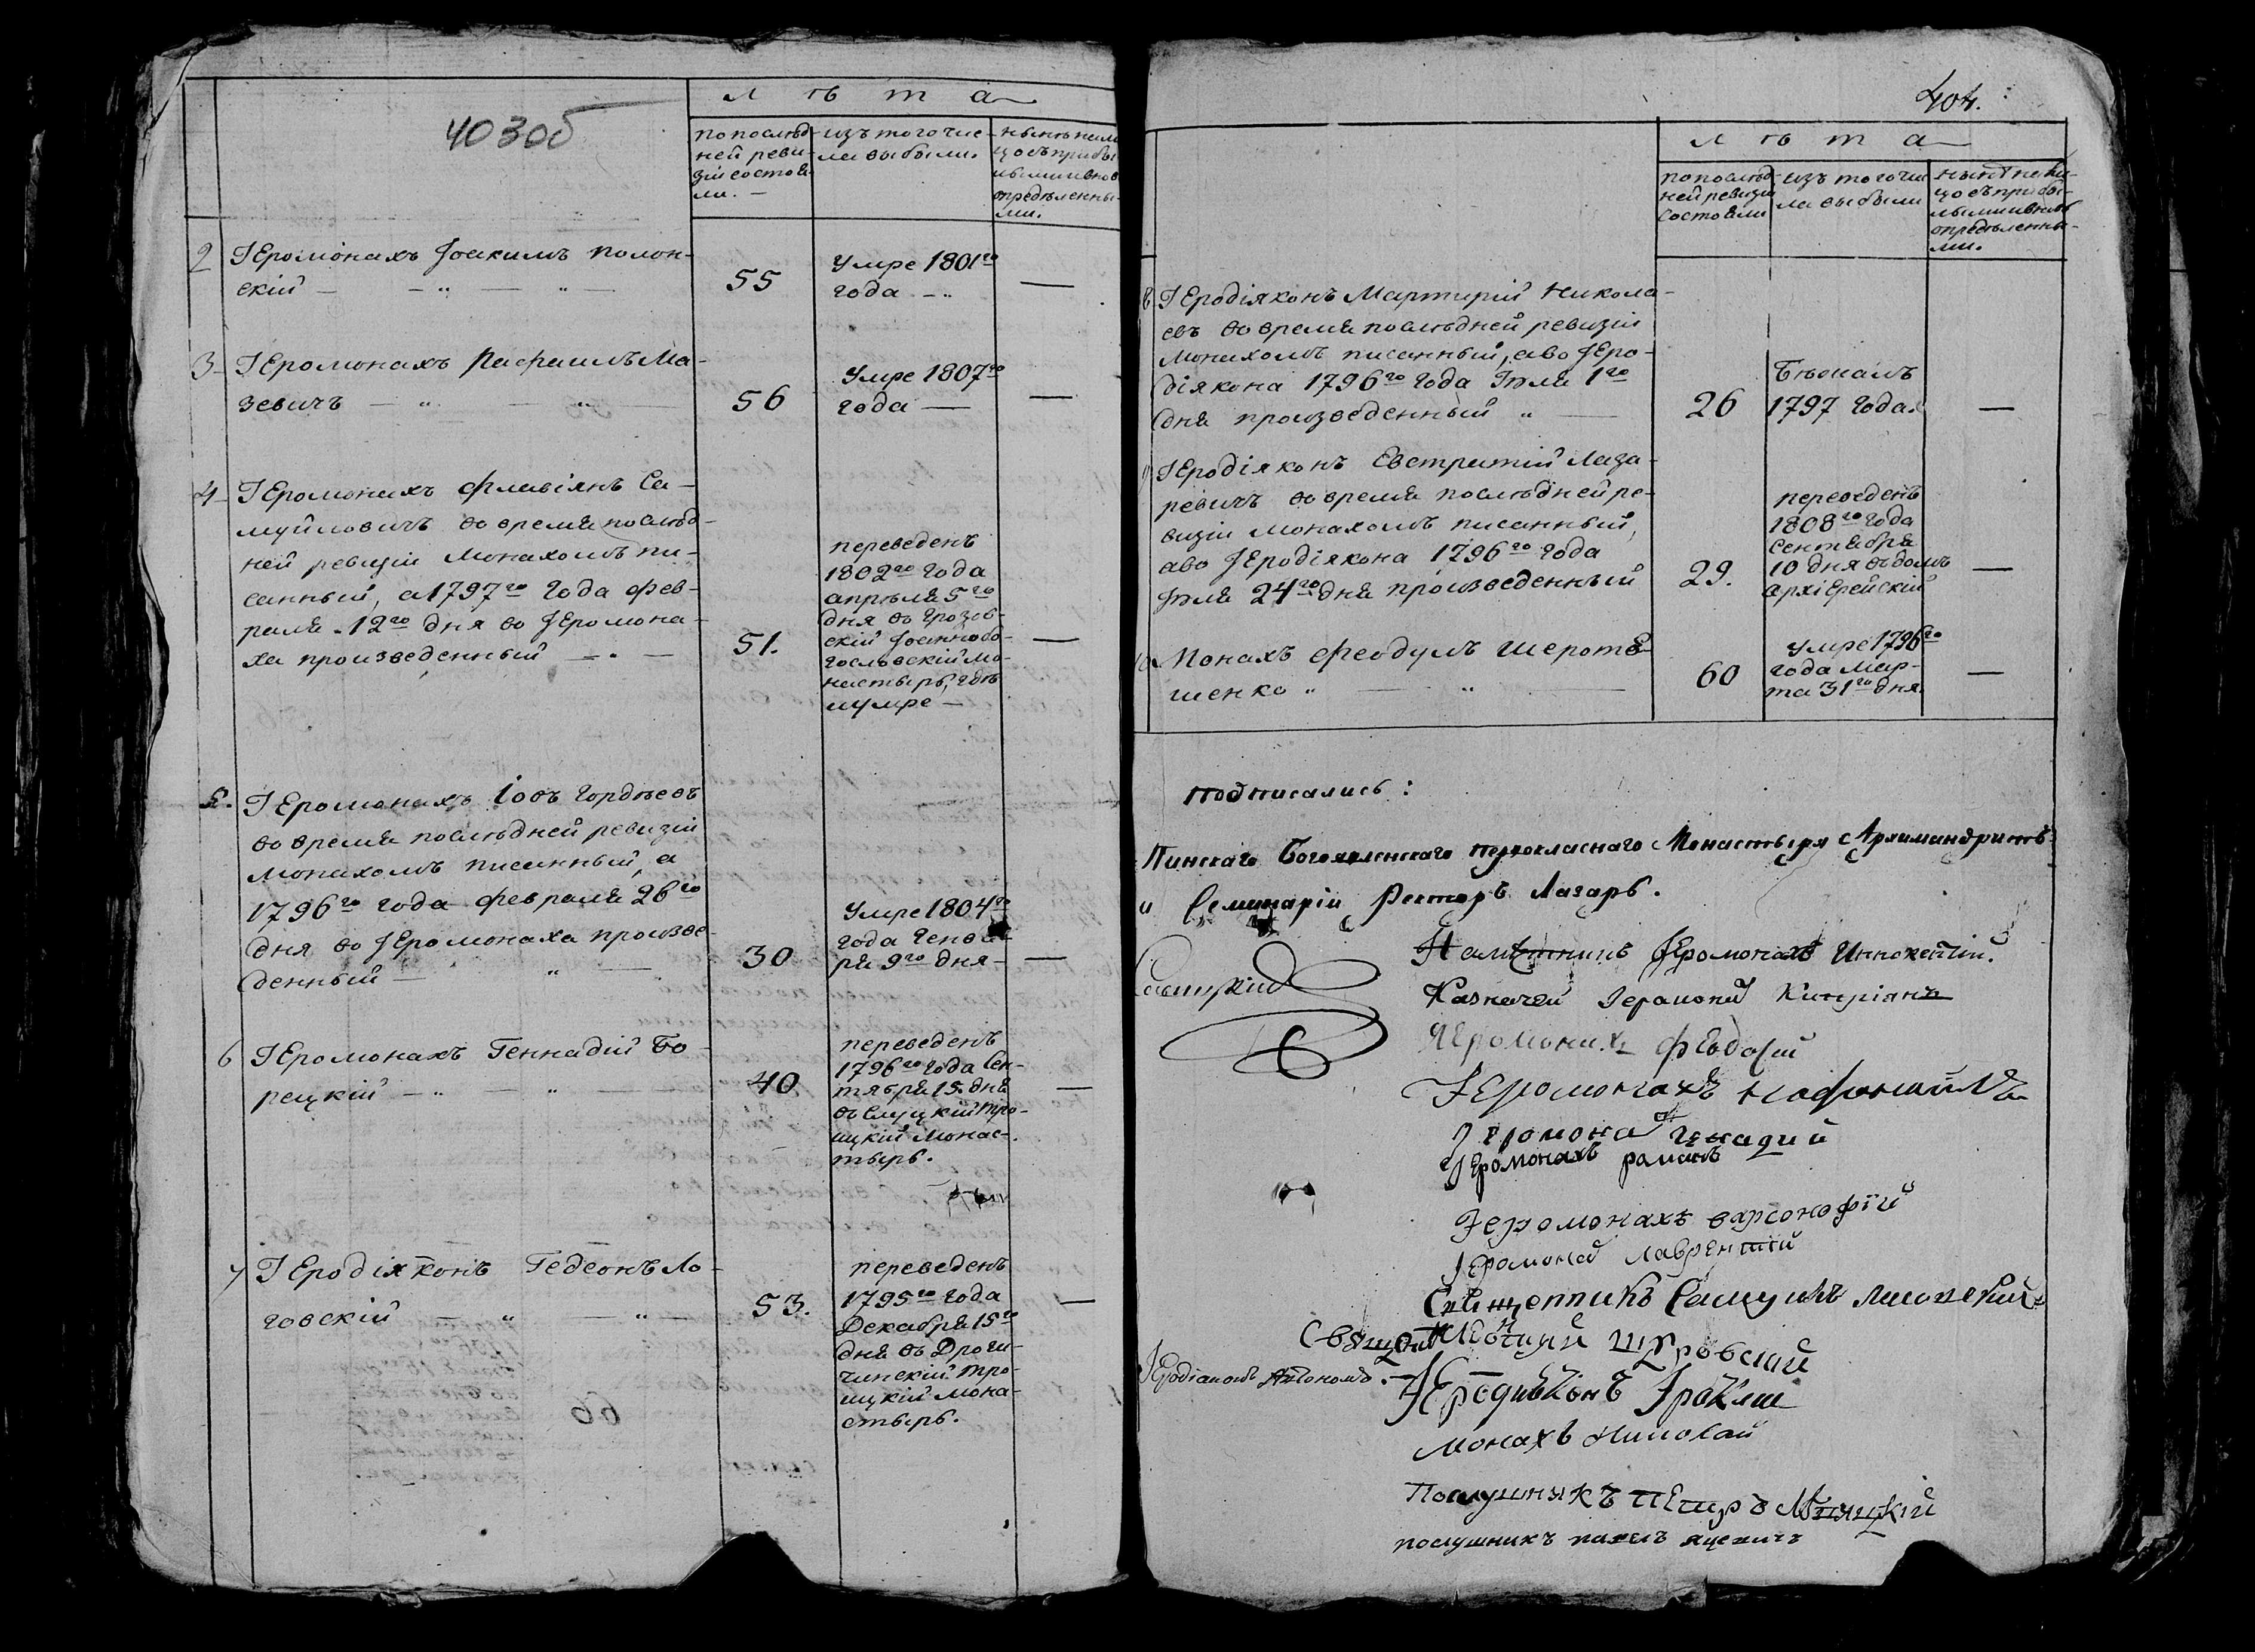 403об
Лѣта
по послѣд-
ней реви-
зіи состоя
ли. —
изъ того чис-
ла выбыли.
нынѣ на ли
цо съ прибы
лыми и внов
опредѣленны-
ми.
2 Іеромонахъ Іоакимъ Полон-
скій — 55 Умре 1801го
года —
3 Іеромонахъ Рафаилъ Ма-
зевичъ — 56 Умре 1807го
года —
4 Іеромонахъ Флавіянъ Са-
муйловичъ во время послѣд-
ней ревизіи Монахомъ пи-
санный, а 1797го года фев-
раля 12го дня во Іеромона-
ха произведенный — 51.
переведенъ
1802го года
апрѣля 5го
дня въ Грозов-
скій Іоаннобо-
гословскій мо-
настырь, гдѣ
и умре —
5. Іеромонахъ Іовъ Гордѣевъ
во время послѣдней ревизіи
Монахомъ писанный, а
1796го года февраля 26го
дня во Іеромонаха произве-
денный — 30
Умре 1804го
года Генва-
ря 9го дня —
6 Іеромонахъ Геннадій Бо-
рецкій — 40
переведенъ
1796го года Сен-
тября 15. дня
въ Слуцкій Тро-
ицкій Монас-
тырь.
7 Іеродіяконъ Гедеонъ Ло-
говскій — 53.
переведенъ
1795го года
Декабря 15го
дня въ Дроги-
чинскій Тро-
ицкій мона-
стырь.
404.
Лѣта
по послѣд-
ней ревизіи
состояли
изъ того чис
ла выбыли
нынѣ на ли-
цо съ прибы-
лыми и вновь
опредѣленны-
ми.
8 Іеродіяконъ Мартирій Никола-
евъ во время послѣдней ревизіи
Монахомъ писанный, а во Іеро-
діякона 1796го года Іюля 1го
дня произведенный — 26
Бѣжалъ
1797 года. —
9 Іеродіяконъ Евстратій Лаза-
ревичъ во время послѣдней ре-
визіи Монахомъ писанный,
а во Іеродіякона 1796го года
Іюля 24го дня произведенный 29.
переведенъ
1808го года
Сентября
10 дня въ домъ
архіерейскій —
10 Монахъ Феодулъ Шеротѣ-
шенко — 60
Умре 1796го
года Мар-
та 31го дня. —
Подписались:
Пинскаго Богоявленскаго первокласнаго Монастыря Архимандритъ
и Семинаріи Ректоръ Лазарь.
Намѣстникъ Іеромонахъ Иннокентій.
Казначей Іеромонах Кипріянъ
Іеромонах Феодосій
Іеромонахъ
Іеромонах Генадий
Іеромонахъ романъ
Іеромонахъ варсонофій
Іеромонах Лаврентій
Священникъ Самуилъ
Священ
Іеродіаконъ Автономъ.
Іеродияконъ
Монахъ Николай
Послушникъ Петръ
послушникъ павелъ яцевичъ